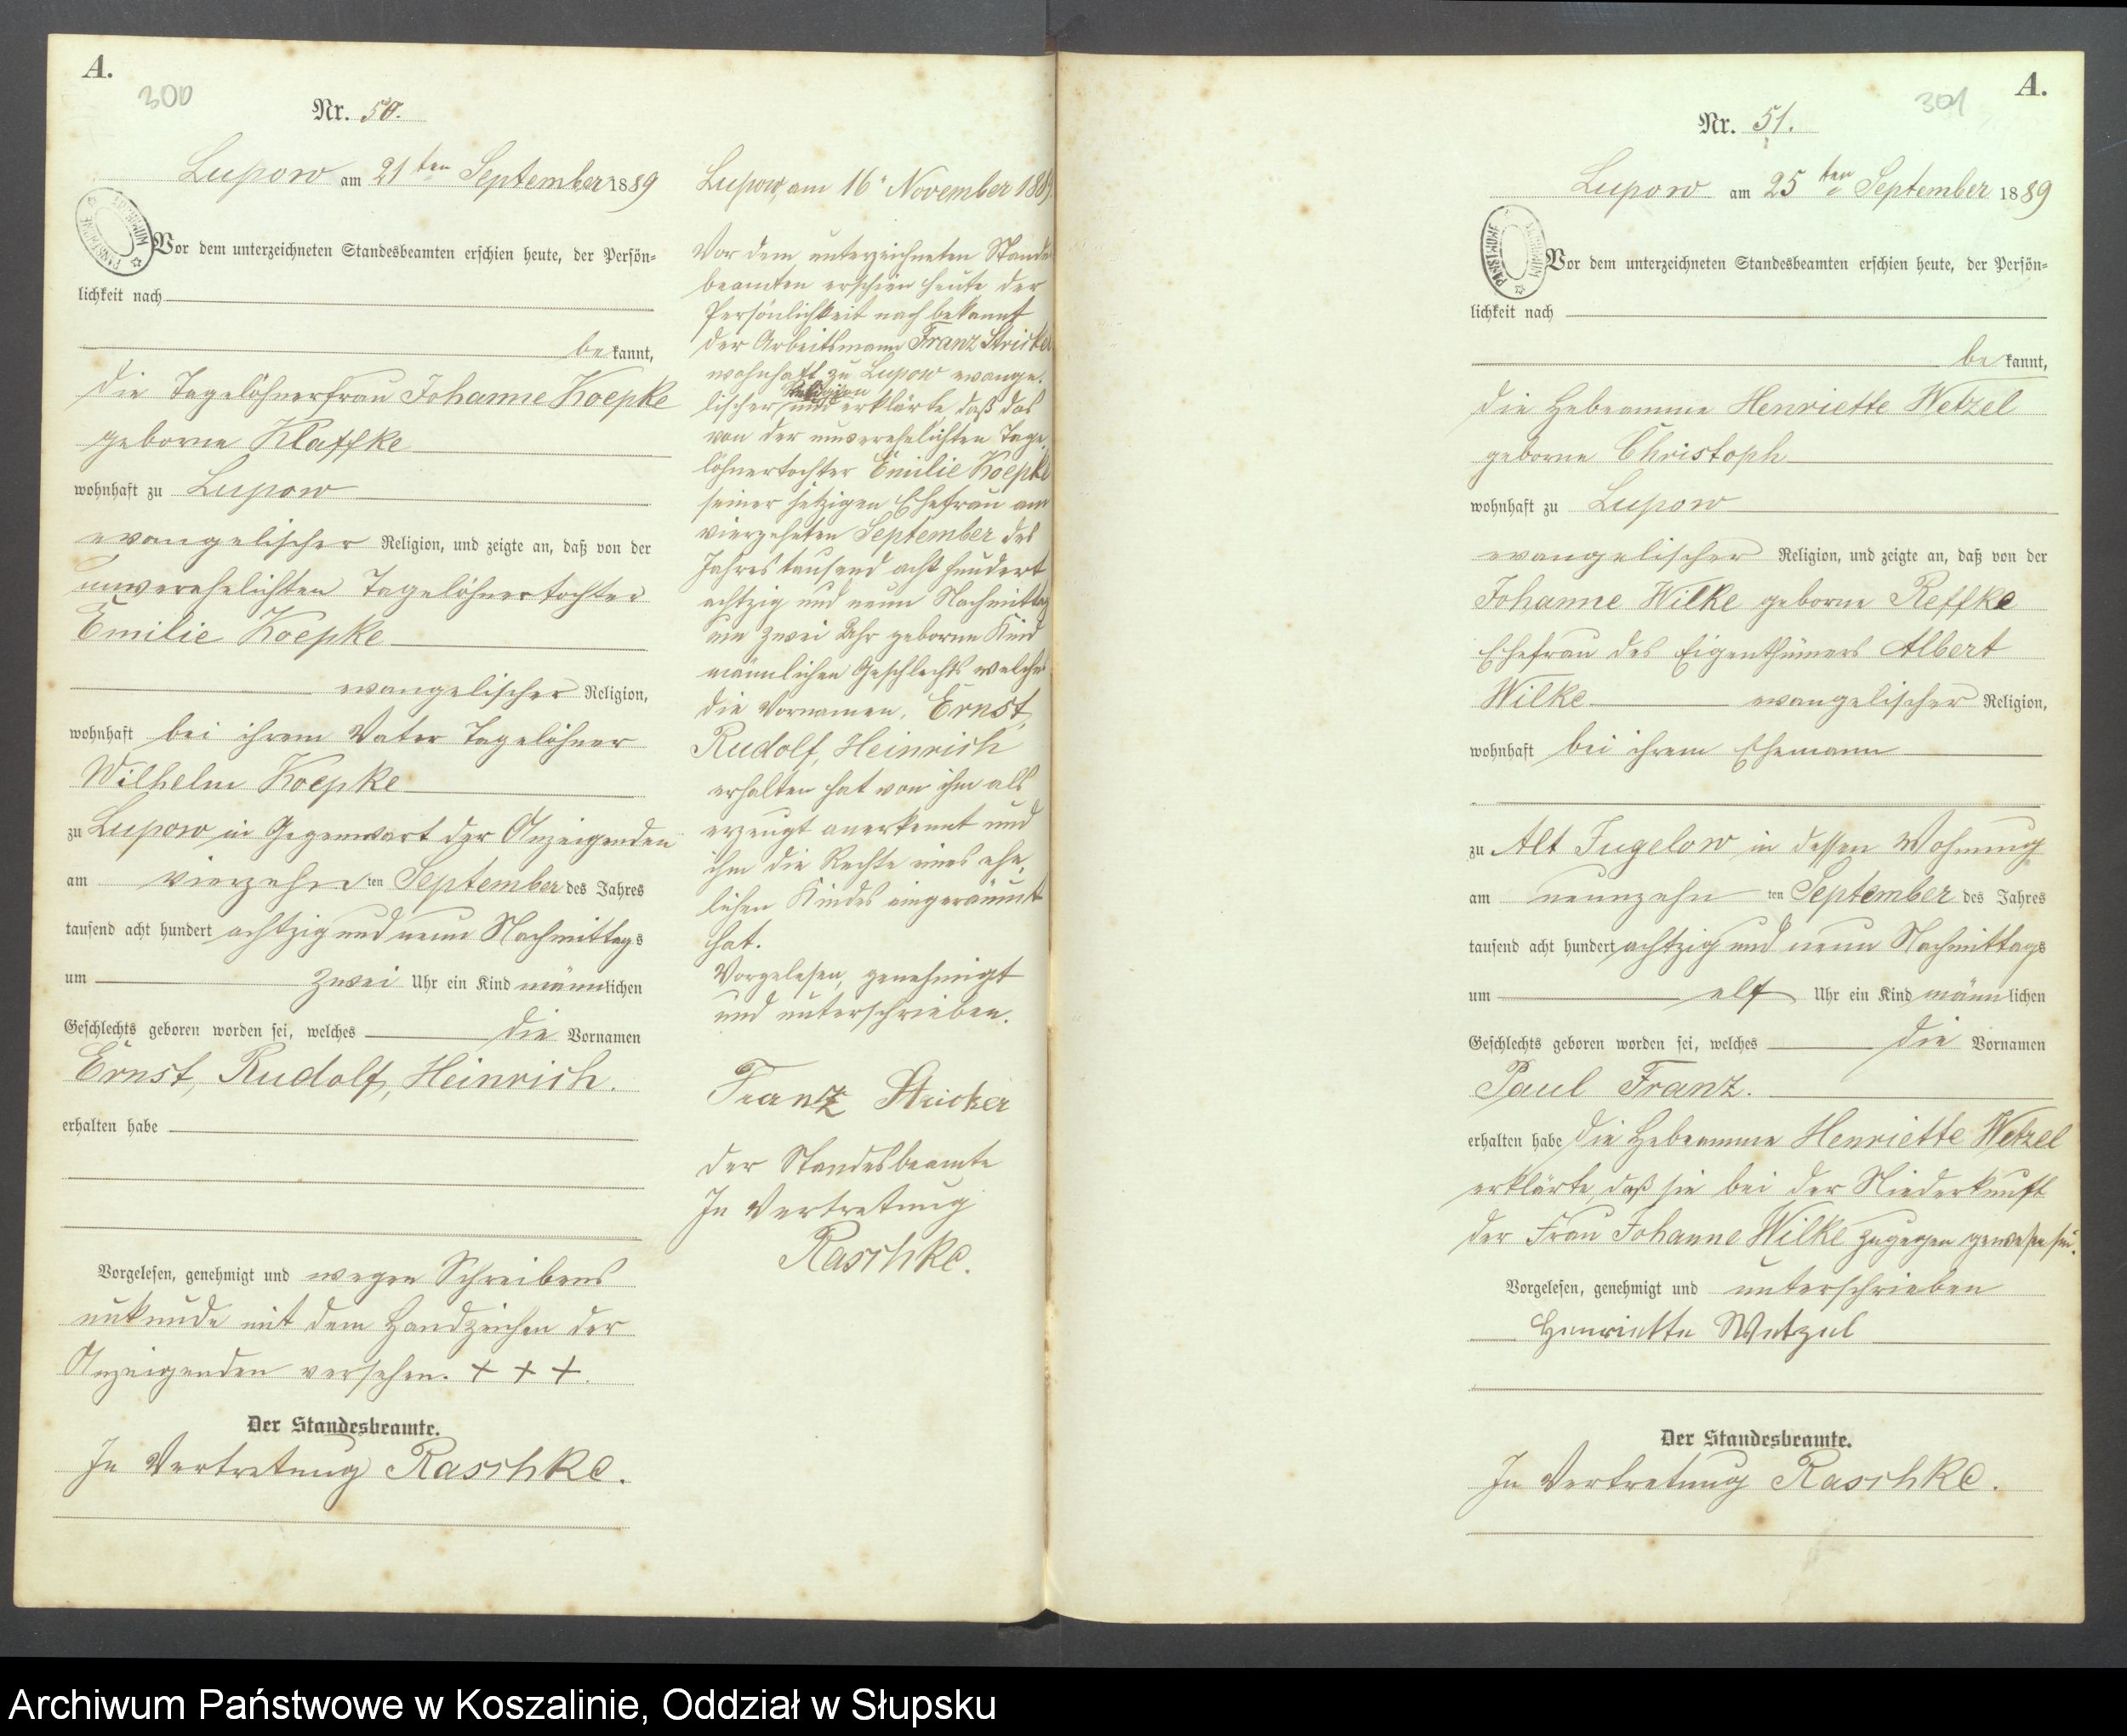 A.
300
Nr. 50.
Lupow am 21ten September 1889
Vor dem unterzeichneten Standesbeamten erschien heute, der Persön-
lichkeit nach
bekannt,
die Tagelöhnerfrau Johanne Koepke
geborne Klaffke
wohnhaft zu Lupow
evangelischer Religion, und zeigte an, daß von der
unverehelichten Tagelöhnertochter
Emilie Koepke
evangelischer Religion,
wohnhaft bei ihrem Vater Tagelöhner
Wilhelm Koepke
zu Lupow in Gegenwart der Anzeigenden
am vierzehn ten September des Jahres
tausend acht hundert achtzig und neun Nachmittags
um zwei Uhr ein Kind männlichen
Geschlechts geboren worden sei, welches die Vornamen
Ernst, Rudolf, Heinrich.
erhalten habe
Vorgelesen, genehmigt und wegen Schreibens
unkunde mit dem Handzeichen der
Anzeigenden versehen. + + +.
Der Standesbeamte.
In Vertretung Raschke.
Lupow, am 16. November 1889.
Vor dem unterzeichneten Standes
beamten erschien heute der
Persönlichkeit nach bekannt
der Arbeitsmann Franz Stricker
wohnhaft zu Lupow evange-
Religion
lischer, und erklärte, daß das
von der unverehelichten Tage-
löhnertochter Emilie Koepke
seiner jetzigen Ehefrau am
vierzehnten September des
Jahres tausend acht hundert
achtzig und neun Nachmittag
um zwei Uhr geborne Kind
männlichen Geschlechts welches
die Vornamen, Ernst,
Rudolf, Heinrich
erhalten hat von ihm als
erzeugt anerkannt und
ihm die Rechte eines ehe-
lichen Kindes eingeräumt
hat.
Vorgelesen, genehmigt
und unterschrieben.
Franz Stricker
Der Standesbeamte
In Vertretung
Raschke.
A.
301
Nr. 51.
Lupow am 25ten September 1889
PAŃSTWOWE ARCHIWUM
Vor dem unterzeichneten Standesbeamten erschien heute, der Persön-
lichkeit nach
bekannt,
die Hebeamme Henriette Wetzel
geborne Christoph
wohnhaft zu Lupow
evangelischer Religion, und zeigte an, daß von der
Johanne Wilke geborne Reffke
Ehefrau des Eigenthümers Albert
Wilke evangelischer Religion,
wohnhaft bei ihrem Ehemann
zu Alt Jugelow in dessen Wohnung
am neunzehn ten September des Jahres
tausend acht hundert achtzig und neun Nachmittags
um elf Uhr ein Kind männlichen
Geschlechts geboren worden sei, welches die Vornamen
Paul Franz.
erhalten habe die Hebeamme Henriette Wetzel
erklärte, daß sie bei der Niederkunft
der Frau Johanne Wilke zugegen gewesen sei.
Vorgelesen, genehmigt und unterschrieben
Henriette Wetzel
Der Standesbeamte.
In Vertretung Raschke.
Archiwum Państwowe w Koszalinie, Oddział w Słupsku